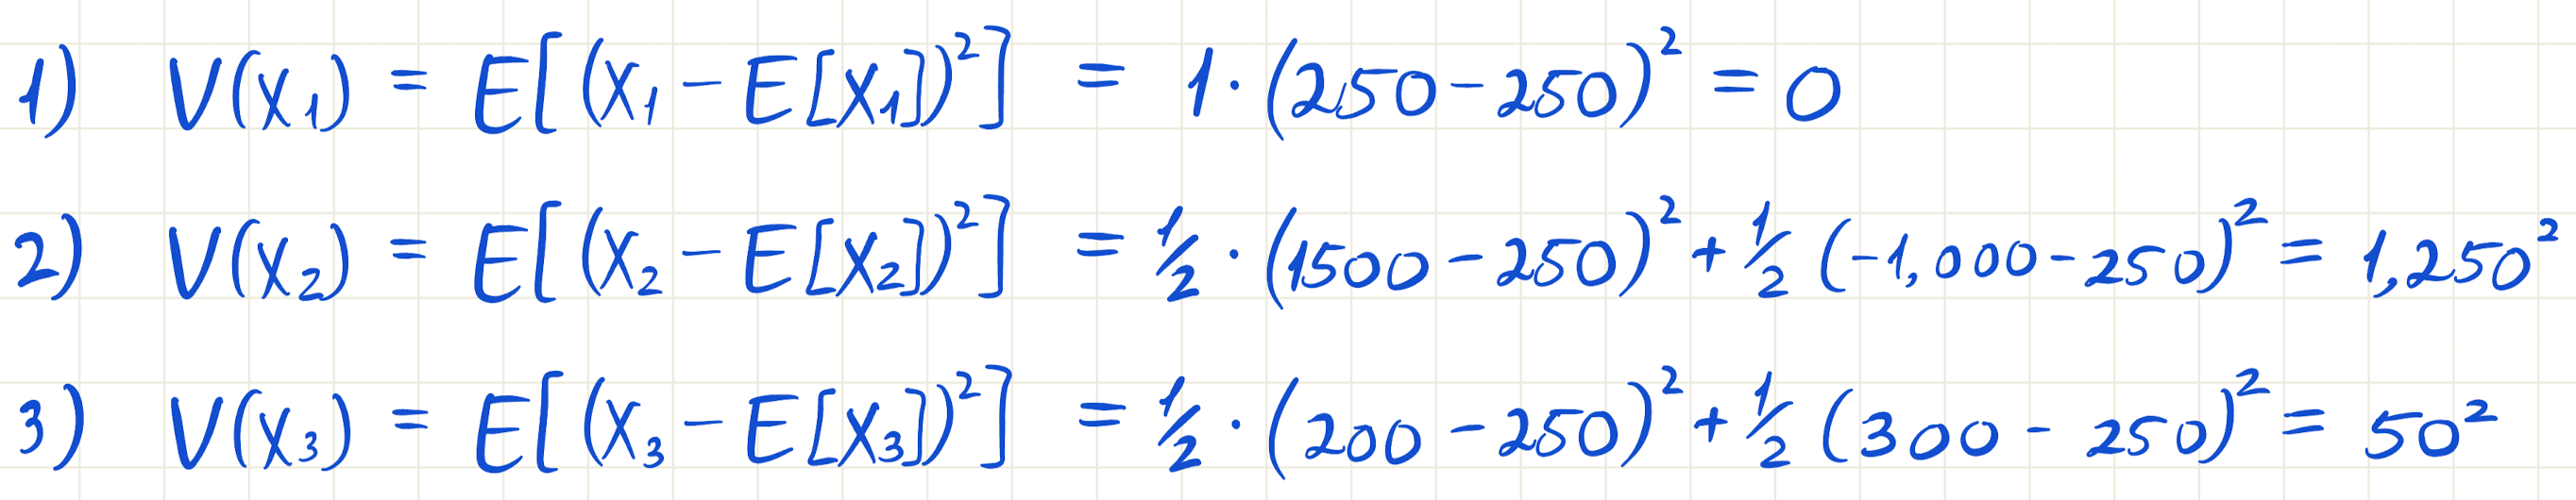 1) V(X₁) = E[(X₁ - E[X₁])²] = 1·(250-250)² = 0
2) V(X₂) = E[(X₂ - E[X₂])²] = 1/2·(1500-250)² + 1/2(-1,000-250)² = 1,250²
3) V(X₃) = E[(X₃ - E[X₃])²] = 1/2·(200-250)² + 1/2(300-250)² = 50²